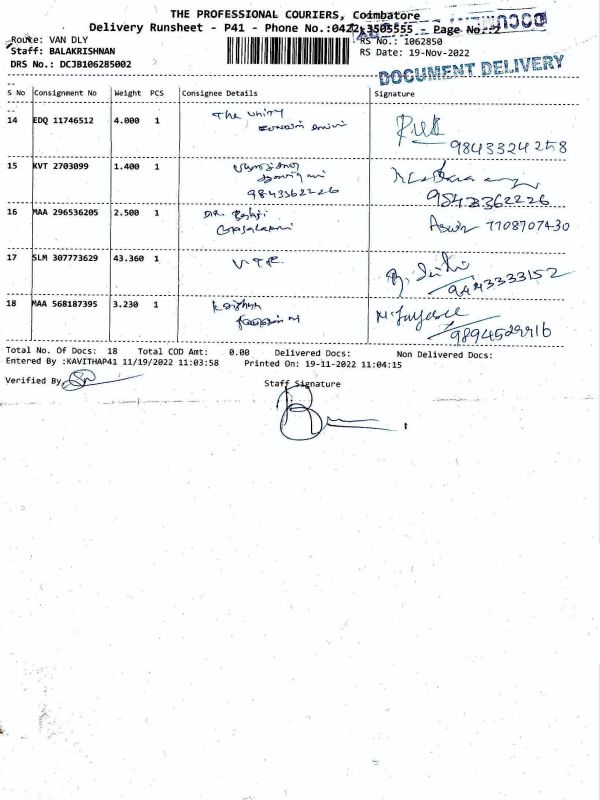 THE PROFESSIONAL COURIERS, Coimbatore
Delivery Runsheet - P41 - Phone No.:0422-3505555 - Page No.:2
Route: VAN DLY
Staff: BALAKRISHNAN
DRS No.: DCJB106285002
RS No.: 1062850
RS Date: 19-Nov-2022
DOCUMENT DELIVERY
S No Consignment No Weight PCS Consignee Details Signature
14 EDQ 11746512 4.000 1 The Unity
9843324258
15 KVT 2703099 1.400 1
9843362226 9843362226
16 MAA 296536205 2.500 1 DR. Balaji Aswin 7708707430
17 SLM 307773629 43.360 1 V.T.R.
9443333152
18 MAA 568187395 3.230 1 Krishna
9894529916
Total No. Of Docs: 18 Total COD Amt: 0.00 Delivered Docs: Non Delivered Docs:
Entered By :KAVITHAP41 11/19/2022 11:03:58 Printed On: 19-11-2022 11:04:15
Verified By
Staff Signature